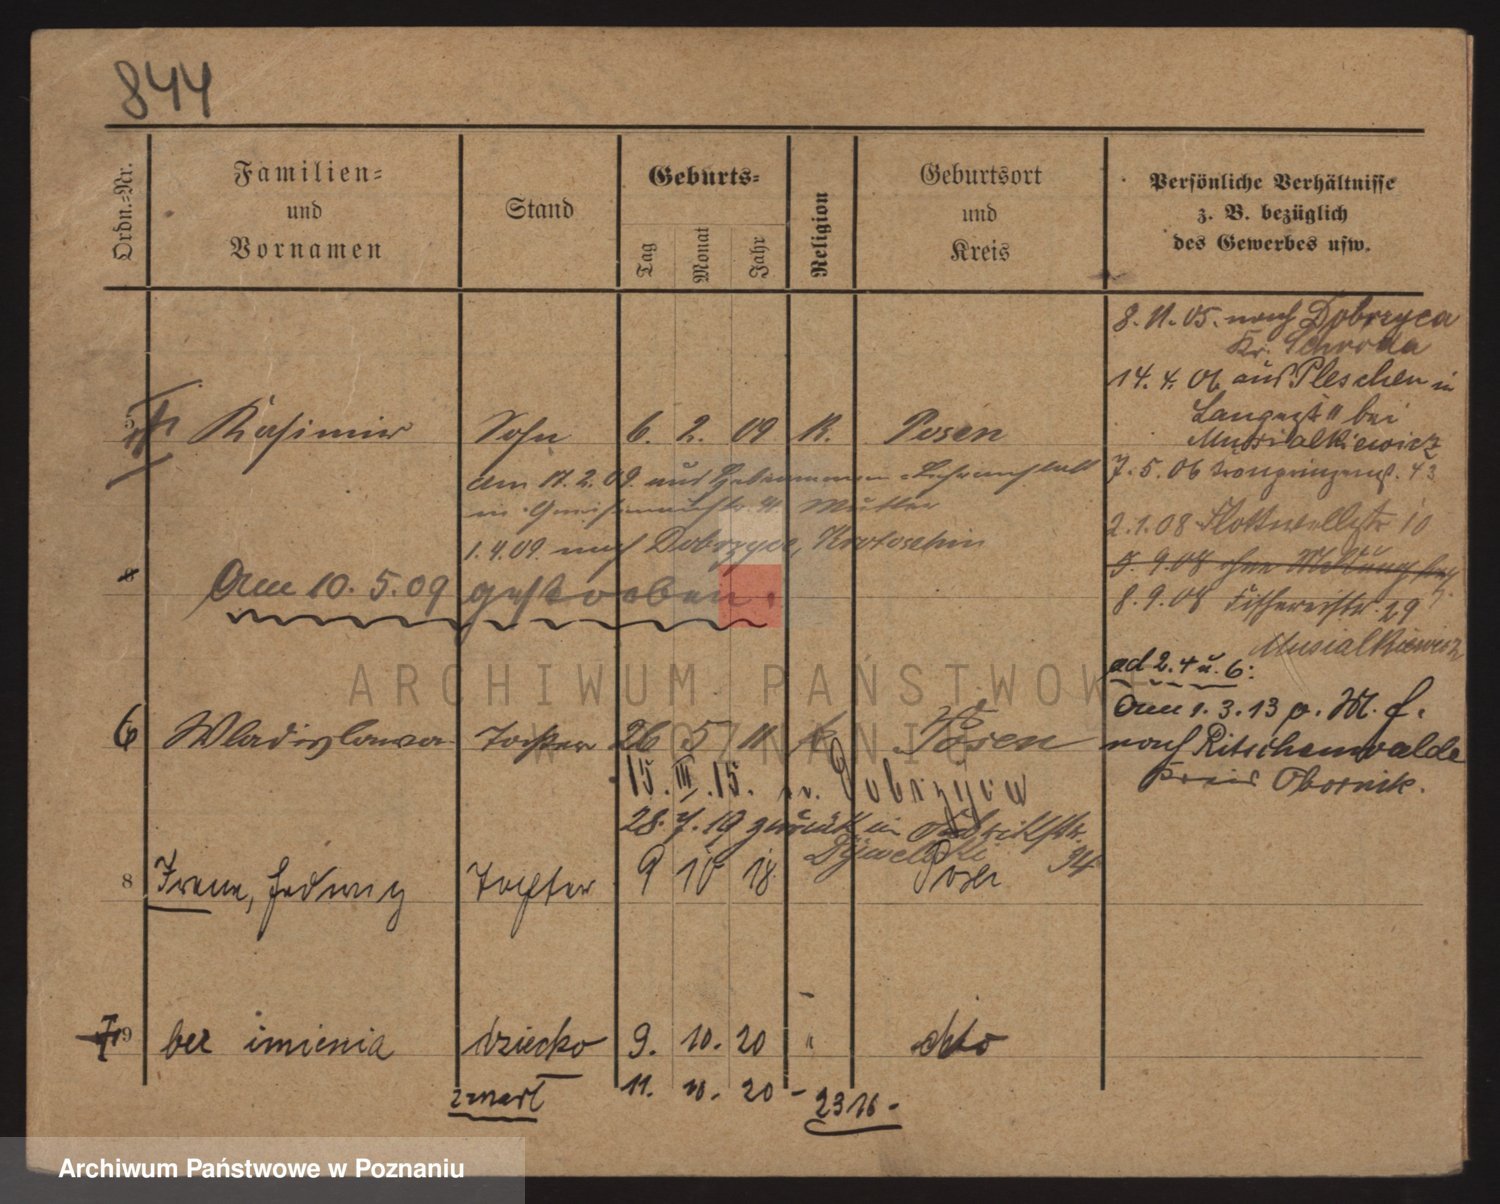 844
Ordn.-Nr.
Familien-
und
Vornamen
Stand
Geburts-
Tag
Monat
Jahr
Religion
Geburtsort
und
Kreis
Persönliche Verhältnisse
z. B. bezüglich
des Gewerbes usw.
8. 11. 05. nach Dobrzyca
Kr. Schroda
14. 4. 06 aus Pleschen in
Langestr bei
Musialkiewicz
7. 5. 06 Kronprinzenst. 43
2. 1. 08 Flottwellstr 10
5. 9 08 ohne Meldung
8. 9. 08 Fischereistr. 29
Musialkiewicz
ad 2. 4 u. 6:
Am 1. 3. 13 p. M. f.
nach Ritschenwalde
Kreis Obornik.
5 Kasimir Sohn 6. 2. 09 K. Posen
am 17. 2. 09. aus Hebammen-Lehranstalt
in Gneisenaustr. Mutter
1. 4. 09. nach Dobrzyca, Krotoschin
8 Am 10. 5. 09 gestorben.
ARCHIWUM PAŃSTWOWE
W POZNANIU
6 Wladislawa Tochter 26 5 11 k Posen
15. III. 15. n. Dobrzyca
28. 7. 19 zurück in
94
8 Irene, Hedwig Tochter 9 10 18 Posen
9 bez imienia dziecko 9. 10. 20 " dto
zmarł 11. 10. 20 - 2316 -
Archiwum Państwowe w Poznaniu